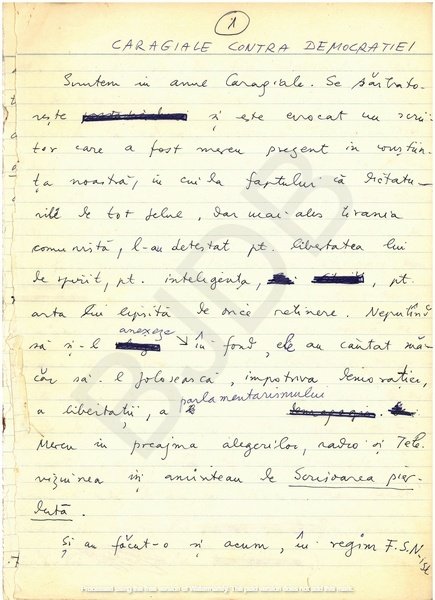 1
CARAGIALE CONTRA DEMOCRATIEI
Suntem în anul Caragiale. Se sărbăto-
rește și este evocat un scrii-
tor care a fost mereu prezent în conștiin-
ța noastră, în ciuda faptului că dictatu-
rile de tot felul, dar mai ales tirania
comunistă, l-au detestat pt. libertatea lui
de spirit, pt. inteligența, pt.
arta lui lipsită de orice reținere. Neputînd
să și-l anexeze în fond, ele au căutat mă-
car să-l folosească, împotriva democrației,
a libertății, a parlamentarismului
Mereu în preajma alegerilor, radio și Tele-
viziunea își aminteau de Scrisoarea pier-
dută.
Și au făcut-o și acum, în regim F.S.N-ist
BJDB